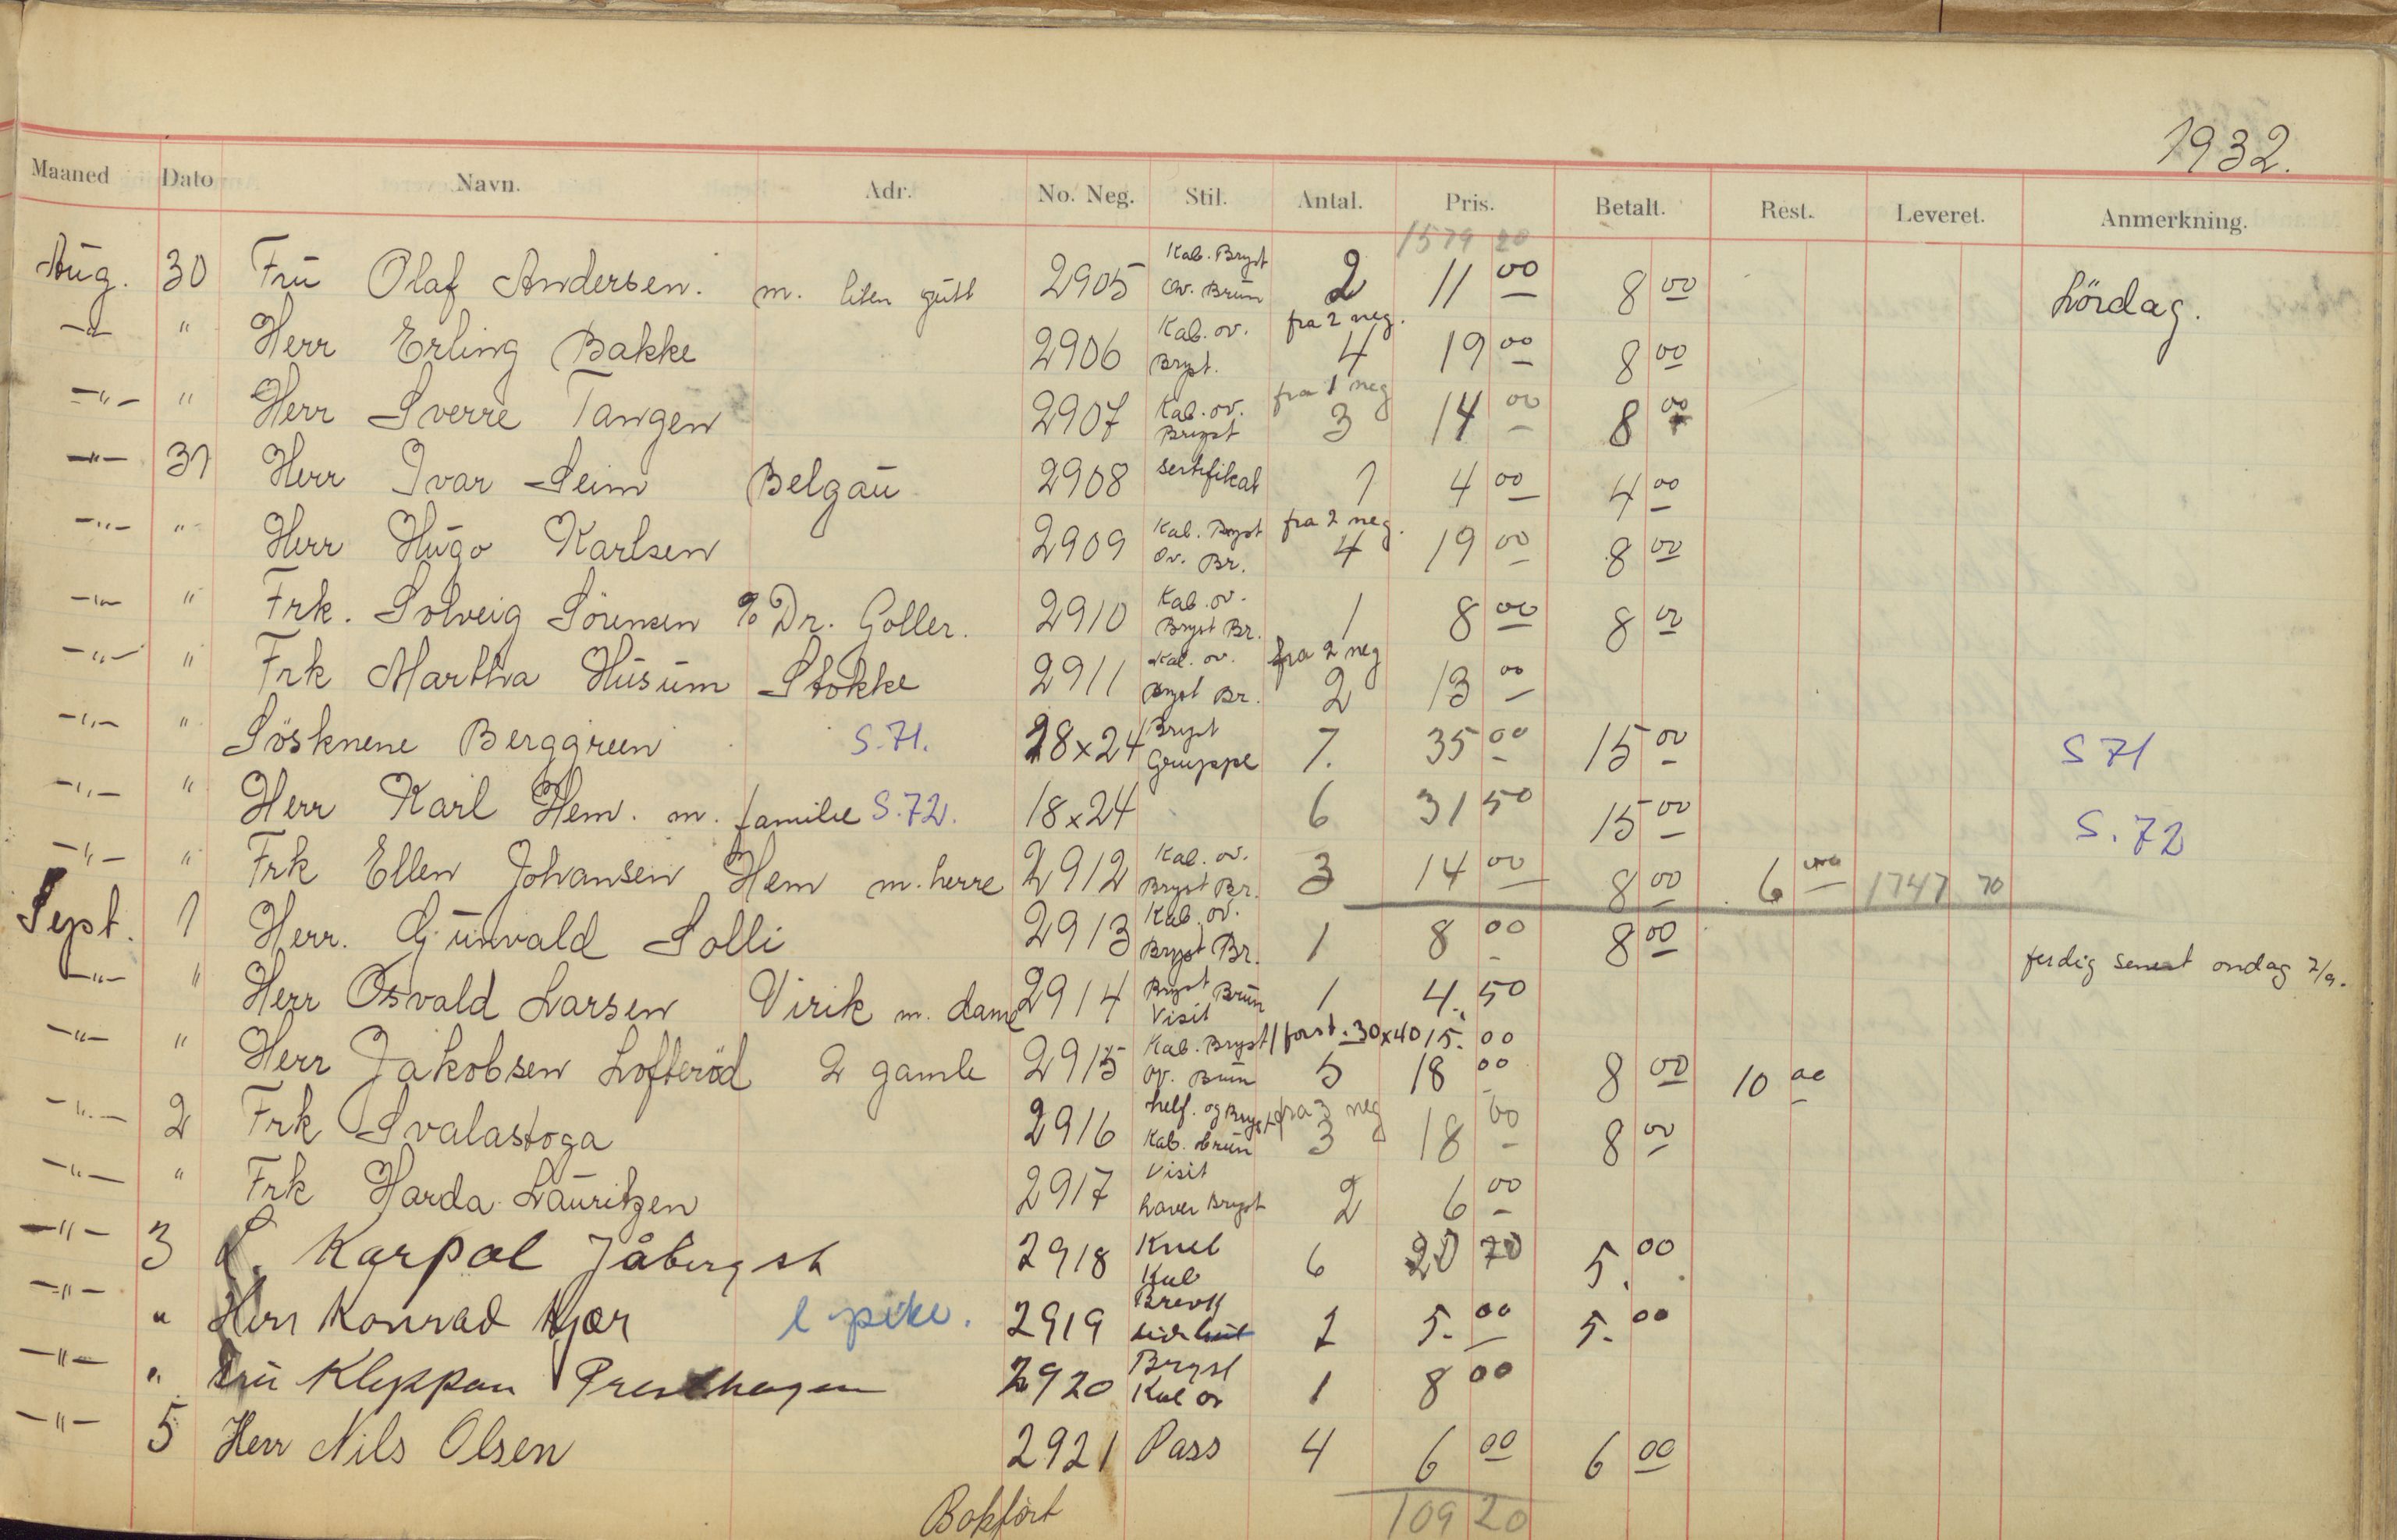 1932.
Maaned Dato Navn. Adr. No. Neg. Stil. Antal. Pris. Betalt. Rest. Leveret. Anmerkning.
1579 20
Aug. 30 Frū Olaf Andersen. m. liten gūtt 2905 Kab. Bryst ov. Brūn 2 11 00 8 00 Lördag.
-"- " Herr Erling Bakke 2906 Kab. ov. Bryst. fra 2 neg. 4 19 00 8 00
-"- " Herr Sverre Tangen 2907 Kab. ov. Bryst fra 1 neg 3 14 00 8 00
-"- 31 Herr Ivar Seim Belgaū 2908 sertifikat 1 4 00 4 00
-"- " Herr Hūgo Karlsen 2909 Kab. Bryst ov. Br. fra 2 neg. 4 19 00 8 00
-"- " Frk. Solveig Sörensen % Dr. Goller. 2910 Kab. ov. Bryst Br. 1 8 00 8 00
-"- " Frk Martha Hūsūm Stokke 2911 Kab. ov. Bryst Br. fra 2 neg 2 13 00
-"- " Sösknene Berggreen S.71. 28x24 Bryst Gruppe 7. 35 00 15 00 S 71
-"- " Herr Karl Hem. m. familie S.72. 18x24 6 31 50 15 00 S. 72
-"- " Frk Ellen Johansen Hem m. herre 2912 Kab. ov. Bryst Br. 3 14 00 8 00 6 00 1747 70
Sept. 1 Herr. Gūnvald Solli 2913 Kab. ov. Bryst Br. 1 8 00 8 00
-"- " Herr Osvald Larsen Virik m. dame 2914 Bryst Brūn Visit 1 4. 50 ferdig senest ondag 7/9.
-"- " Herr Jakobsen Lofteröd 2 gamle 2915 Kab. Bryst ov. Brūn 1 forst. 30x40 15. 00 5 18 00 8 00 10 00
-"- 2 Frk Svalastoga 2916 helf. og Bryst Kab. brūn fra 3 neg 3 18 00 8 00
-"- " Frk Harda Laūritzen 2917 Visit Bryst 2 6 00
-"- 3 Karpol Jåbergst 2918 Knel Kab 6 20 70 5. 00
-"- " Herr Konrad Kjær 1 pike. 2919 Brevk 1 5. 00 5. 00
-"- " Frū Kleppan Presthagen 2920 Bryst Kab ov 1 8 00
-"- 5 Herr Nils Olsen 2921 Pass 4 6 00 6 00
Bokfört 109 20